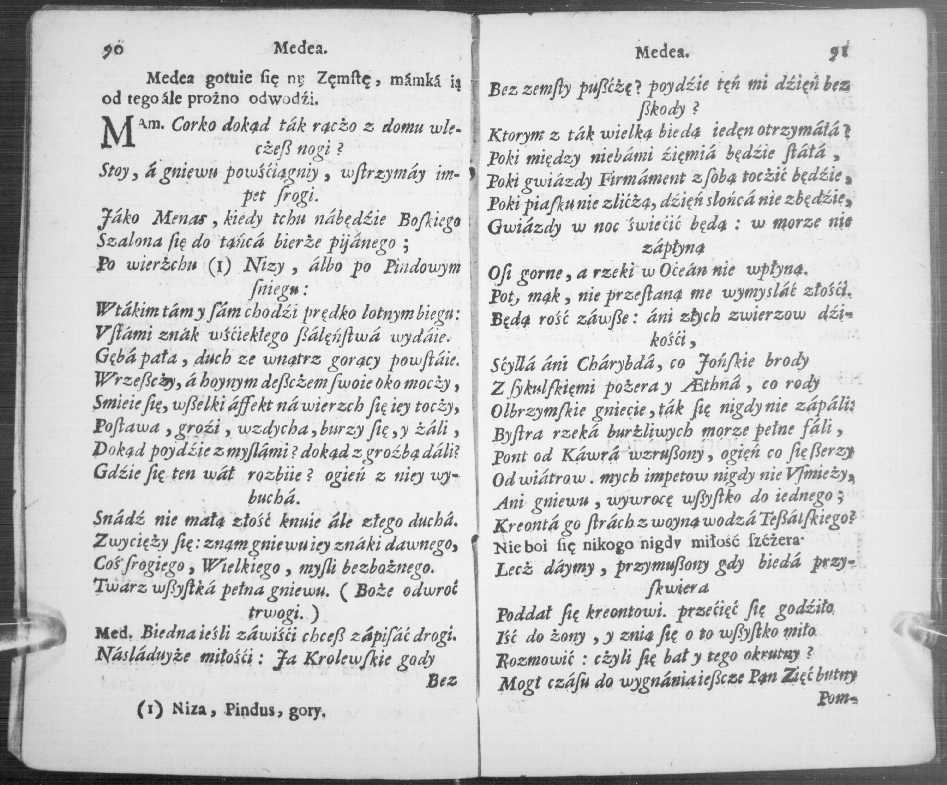 90 Medea.
Medea gotuie się ny Zęmſtę, mámká ią
od tego ále prożno odwodźi.
MAm. Corko dokąd ták rączo z domu wle-
czeß nogi?
Stoy, á gniewu powśćiągniy, wſtrzymáy im-
pet ſrogi.
Jáko Menas, kiedy tchu nábędźie Boſkiego
Szalona ſię do táńcá bierże pijánego;
Po wierżchu (1) Nizy, álbo po Pindowym
ſniegu:
Wtákim támy ſám chodźi prędko lotnym biegu:
Vſtámi znák wśćiekłego ßáłęńſtwá wydáie.
Gębá pała, duch ze wnątrz gorący powſtáie.
Wrzeßczy, á hoynym deßczem ſwoie oko moczy,
Smieie ſię, wßelki áffekt ná wierzch ſię iey toczy,
Poſtawa, groźi, wzdycha, burzy ſię, y żáli,
Dokąd poydźie z myſlámi? dokąd z groźbą dáli?
Gdźie ſię ten wáł rozbiie? ogień z niey wy-
buchá.
Snádź nie małą złość knuie ále złego duchá.
Zwycięży ſię: znąm gniewu iey znáki dawnego,
Coś ſrogiego, Wielkiego, myſli bezbożnego.
Twarz wßyſtká pełna gniewu. (Boże odwroć
trwogi.)
Med. Biedna ieśli záwiśći chceß zápiſáć drogi.
Násláduyże miłośći: Ja Krolewſkie gody
Bez
(1) Niza, Pindus, gory.
Medea. 91
Bez zemſty pußćzę? poydźie tęń mi dźień bez
ßkody?
Ktorym z ták wielką biedą iedęn otrzymáłá?
Poki między niebámi źięmiá będzie ſtáłá,
Poki gwiázdy Firmáment z ſobą toczić będźie,
Poki piaſku nie zliczą, dźięń słońcá nie zbędźie,
Gwiázdy w noc świećić będą: w morze nie
zápłyną
Oſi gorne, a rzeki w Oceán nie wpłyną.
Pot, mąk, nie przeſtaną me wymysláć złośći.
Będą rość záwße: áni złych zwierzow dźi-
kośći,
Scyllá áni Chárybdá, co Jońſkie brody
Z ſykulſkięmi pożera y Æthná, co rody
Olbrzymſkie gniecie, ták ſię nigdy nie zápáli:
Byſtra rzeká burżliwych morze pełne fáli,
Pont od Káwrá wzrußony, ogięń co ſię ßerzy
Od wiátrow. mych impetow nigdy nie Vſmieży,
Ani gniewu, wywrocę wßyſtko do iednego;
Kreontá go ſtrách z woyną wodzá Teßálſkiego?
Nie boi ſię nikogo nigdy miłość ſzczera
Lecz dáymy, przymußony gdy biedá przy-
ſkwiera
Poddał ſię kreontowi. przećięć ſię godźiło
Iść do żony, y znią ſię o to wßyſtko miło
Rozmowić: czyli ſię bał y tego okrutny?
Mogł czáſu do wygnánia ießcze Pan Zięć butny
Pom-